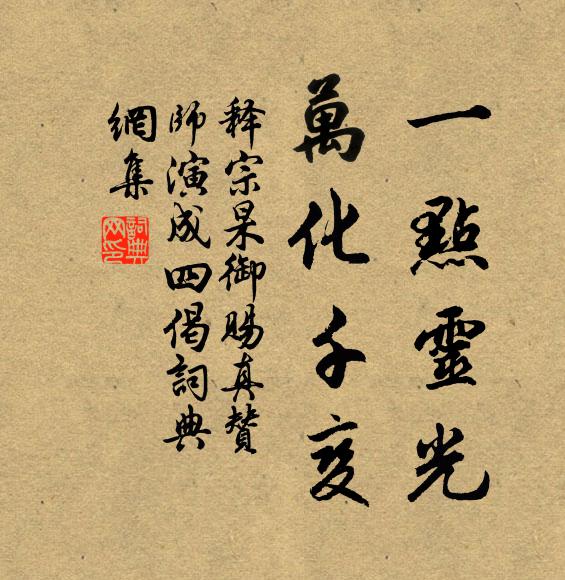 一點靈光
萬化千变
释宗杲御賜真贊
師演成四偈詞典
網集
詞典
网印